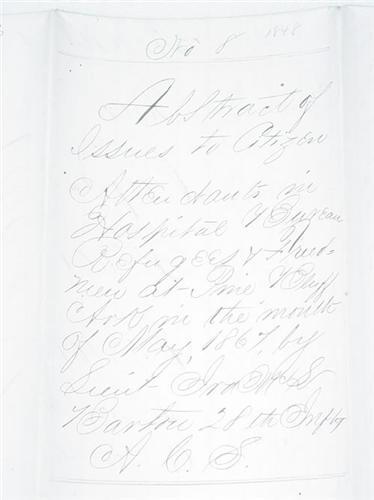 No 8 1848
Abstract of
Issues to Citizen
Attendants in
Hospital Bureau
Refugees & Freed-
men at Pine Bluff
Ark in the month
of May, 1867, by
Lieut Ira McL
Barton 28th Infty
A. C. S.